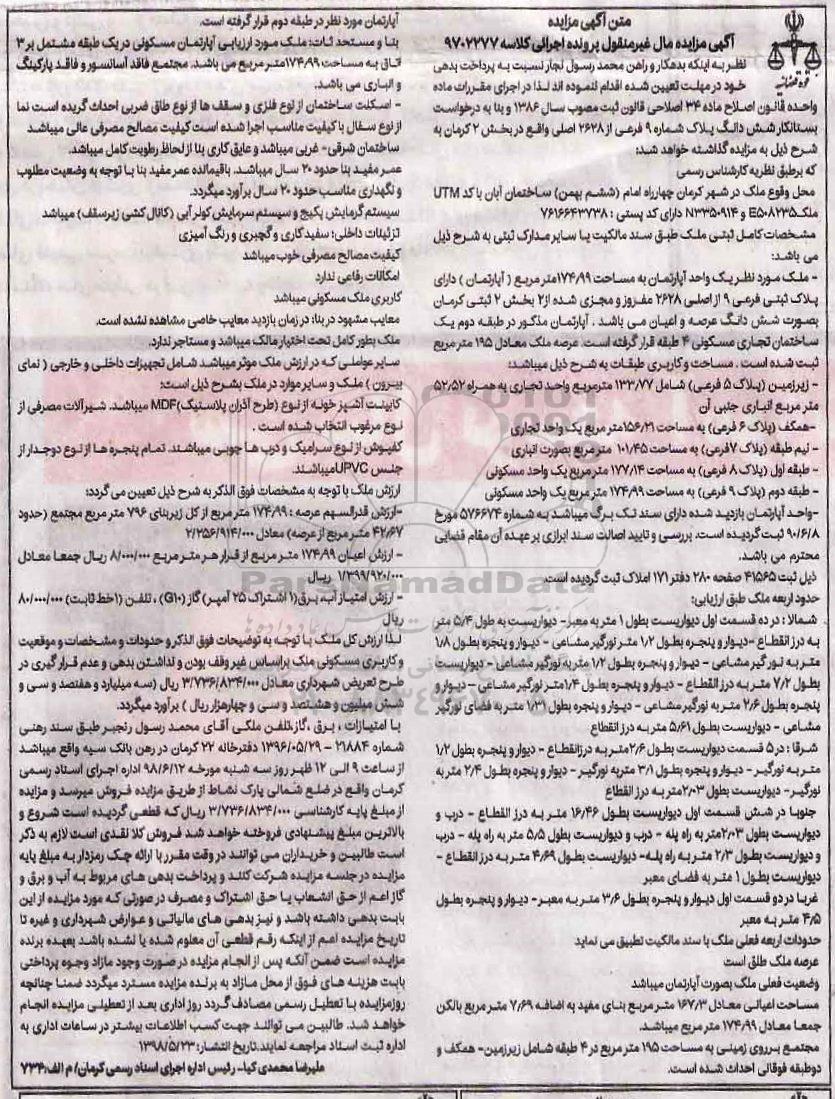 متن آگهی مزایده
آگهی مزایده مال غیرمنقول پرونده اجرائی کلاسه ۹۷۰۲۲۷۷
نظر به اینکه بدهکار و راهن محمد رسول نجار نسبت به پرداخت بدهی
خود در مهلت تعیین شده اقدام ننموده اند لذا در اجرای مقررات ماده
واحده قانون اصلاح ماده ۳۴ اصلاحی قانون ثبت مصوب سال ۱۳۸۶ و بنا به درخواست
بستانکار شش دانگ پلاک شماره ۹ فرعی از ۲۶۲۸ اصلی واقع در بخش ۲ کرمان به
شرح ذیل به مزایده گذاشته خواهد شد:
که برطبق نظریه کارشناس رسمی
محل وقوع ملک در شهر کرمان چهارراه امام (ششم بهمن) ساختمان آبان با کد UTM
ملک E۵۰۸۲۳۵ و N۳۳۵۰۹۱۴ دارای کد پستی : ۷۶۱۶۶۴۳۷۳۸
مشخصات کامل ثبتی ملک طبق سند مالکیت یا سایر مدارک ثبتی به شرح ذیل
می باشد:
- ملک مورد نظر یک واحد آپارتمان به مساحت ۱۷۴/۹۹متر مربع ( آپارتمان ) دارای
پلاک ثبتی فرعی ۹ از اصلی ۲۶۲۸ مفروز و مجزی شده از۲ بخش ۲ ثبتی کرمان
بصورت شش دانگ عرصه و اعیان می باشد . آپارتمان مذکور در طبقه دوم یک
ساختمان تجاری مسکونی ۴ طبقه قرار گرفته است. عرصه ملک معادل ۱۹۵ متر مربع
ثبت شده است . مساحت و کاربری طبقات به شرح ذیل میباشد:
- زیرزمین (پلاک ۵ فرعی) شامل ۱۳۳/۷۷ مترمربع واحد تجاری به همراه ۵۲/۵۲
متر مربع انباری جنبی آن
-همکف (پلاک ۶ فرعی) به مساحت ۱۵۶/۲۱متر مربع یک واحد تجاری
- نیم طبقه (پلاک ۷فرعی) به مساحت ۱۰۱/۴۵ متر مربع بصورت انباری
- طبقه اول (پلاک ۸ فرعی) به مساحت ۱۷۷/۱۴ متر مربع یک واحد مسکونی
- طبقه دوم (پلاک ۹ فرعی) به مساحت ۱۷۴/۹۹ متر مربع یک واحد مسکونی
-واحد آپارتمان بازدید شده دارای سند تک برگ میباشد به شماره ۵۷۶۶۷۴ مورخ
۹۰/۶/۸ ثبت گردیده است. بررسی و تایید اصالت سند ابرازی بر عهده آن مقام قضایی
محترم می باشد.
ذیل ثبت ۴۱۵۶۵ صفحه ۲۸۰ دفتر ۱۷۱ املاک ثبت گردیده است.
حدود اربعه ملک طبق ارزیابی:
شمالا : در ده قسمت اول دیواریست بطول ۱ متر به معبر- دیواریست به طول ۵/۴ متر
به درز انقطاع -دیوار و پنجره بطول ۱/۲ متر نورگیر مشاعی - دیوار و پنجره بطول ۱/۸
متر به نورگیر مشاعی - دیوار و پنجره بطول ۱/۲ متر به نورگیر مشاعی - دیواریست
بطول ۷/۲ متر به درز انقطاع - دیوار و پنجره بطول ۱/۴متر نورگیر مشاعی - دیوار و
پنجره بطول ۲/۶ متر به نورگیر مشاعی - دیوار و پنجره بطول ۱/۳۱ متر به فضای نورگیر
مشاعی - دیواریست بطول ۵/۶۱ متر به درز انقطاع
شرقا : در ۵ قسمت دیواریست بطول ۲/۶متر به درزانقطاع - دیوار و پنجره بطول ۱/۲
متر به نورگیر - دیوار و پنجره بطول ۳/۱ متربه نورگیر - دیوار و پنجره بطول ۲/۴ متر به
نورگیر- دیواریست بطول ۲/۰۳متر به درز انقطاع
جنوبا در شش قسمت اول دیواریست بطول ۱۶/۴۶ متر به درز انقطاع - درب و
دیواریست بطول ۲/۰۳متر به راه پله - درب و دیواریست بطول ۵/۵ متر به راه پله - درب
و دیواریست بطول ۲/۳ متر به راه پله- دیواریست بطول ۴/۶۹ متر به درز انقطاع -
دیواریست بطول ۱ متر به فضای معبر
غربا در دو قسمت اول دیوار و پنجره بطول ۳/۶ متر به معبر- دیوار و پنجره بطول
۴/۵ متر به معبر
حدودات اربعه فعلی ملک با سند مالکیت تطبیق می نماید
عرصه ملک طلق است
وضعیت فعلی ملک بصورت آپارتمان میباشد
مساحت اعیانی معادل ۱۶۷/۳ متر مربع بنای مفید به اضافه ۷/۶۹ متر مربع بالکن
جمعا معادل ۱۷۴/۹۹ متر مربع میباشد.
مجتمع برروی زمینی به مساحت ۱۹۵ متر مربع در ۴ طبقه شامل زیرزمین- همکف و
دوطبقه فوقانی احداث شده است.
آپارتمان مورد نظر در طبقه دوم قرار گرفته است.
بنا و مستحدثات: ملک مورد ارزیابی آپارتمان مسکونی در یک طبقه مشتمل بر ۳
اتاق به مساحت ۱۷۴/۹۹متر مربع می باشد. مجتمع فاقد آسانسور و فاقد پارکینگ
و انباری می باشد.
- اسکلت ساختمان از نوع فلزی و سقف ها از نوع طاق ضربی احداث گریده است نما
از نوع سفال با کیفیت مناسب اجرا شده است کیفیت مصالح مصرفی عالی میباشد
ساختمان شرقی- غربی میباشد و عایق کاری بنا از لحاظ رطوبت کامل میباشد.
عمر مفید بنا حدود ۲۰ سال میباشد. باقیمالده عمر مفید بنا با توجه به وضعیت مطلوب
و نگهداری مناسب حدود ۲۰ سال برآورد میگردد.
سیستم گرمایش پکیج و سیستم سرمایش کولر آبی (کانال کشی زیرسقف) میباشد
تزئینات داخلی: سفید کاری و گچبری و رنگ آمیزی
کیفیت مصالح مصرفی خوب میباشد
امکانات رفاهی ندارد
کاربری ملک مسکونی میباشد
معایب مشهود در بنا: در زمان بازدید معایب خاصی مشاهده نشده است.
ملک بطور کامل تحت اختیار مالک میباشد و مستاجر ندارد.
سایر عواملی که در ارزش ملک موثر میباشد شامل تجهیزات داخلی و خارجی ( نمای
بیرون ) ملک و سایر موارد در ملک بشرح ذیل است:
کابینت آشپز خونه از نوع (طرح آذران پلاستیک)MDF میباشد. شیرآلات مصرفی از
نوع مرغوب انتخاب شده است .
کفپوش از نوع سرامیک و درب ها چوبی میباشند. تمام پنجره ها از نوع دوجدار از
جنس UPVCمیباشند.
ارزش ملک با توجه به مشخصات فوق الذکر به شرح ذیل تعیین می گردد:
-ارزش قدرالسهم عرصه : ۱۷۴/۹۹ متر مربع از کل زیربنای ۷۹۶ متر مربع مجتمع (حدود
۴۲/۶۷ متر مربع از عرصه) معادل ۲/۲۵۶/۹۱۴/۰۰۰
- ارزش اعیان ۱۷۴/۹۹ متر مربع از قرار هر متر مربع ۸/۰۰۰/۰۰۰ ریال جمعا معادل
۱/۳۹۹/۹۲۰/۰۰۰ ریال
- ارزش امتیاز آب، برق(۱ اشتراک ۲۵ آمپر) گاز (G۱۰) ، تلفن (۱خط ثابت) ۸۰/۰۰۰/۰۰۰
ریال
لذا ارزش کل ملک با توجه به توضیحات فوق الذکر و حدودات و مشخصات و موقعیت
و کاربری مسکونی ملک براساس غیر وقف بودن و نداشتن بدهی و عدم قرار گیری در
طرح تعریض شهرداری معادل ۳/۷۳۶/۸۳۴/۰۰۰ ریال (سه میلیارد و هفتصد و سی و
شش میلیون و هشتصد و سی و چهارهزار ریال ) برآورد میگردد.
با امتیازات ، برق ،گاز،تلفن ملکی آقای محمد رسول رنجبر طبق سند رهنی
شماره ۲۱۸۸۴ – ۱۳۹۶/۰۵/۲۹ دفترخانه ۲۲ کرمان در رهن بانک سپه واقع میباشد
از ساعت ۹ الی ۱۲ ظهر روز سه شنبه مورخه ۹۸/۶/۱۲ اداره اجرای اسناد رسمی
کرمان واقع در ضلع شمالی پارک نشاط از طریق مزایده فروش میرسد و مزایده
از مبلغ پایه کارشناسی ۳/۷۳۶/۸۳۴/۰۰۰ ریال که قطعی گردیده است شروع و
بالاترین مبلغ پیشنهادی فروخته خواهد شد فروش کلا نقدی است لازم به ذکر
است طالبین و خریداران می توانند در وقت مقرر با ارائه چک رمزدار به مبلغ پایه
مزایده در جلسه مزایده شرکت کنند و پرداخت بدهی های مربوط به آب و برق و
گاز اعم از حق انشعاب یا حق اشتراک و مصرف در صورتی که مورد مزایده از این
بابت بدهی داشته باشد و نیز بدهی های مالیاتی و عوارض شهرداری و غیره تا
تاریخ مزایده اعم از اینکه رقم قطعی آن معلوم شده یا نشده باشد بعهده برنده
مزایده است ضمن آنکه پس از انجام مزایده در صورت وجود مازاد وجوه پرداختی
بابت هزینه های فوق از محل مازاد به برنده مزایده مسترد میگردد ضمنا چنانچه
روزمزایده با تعطیل رسمی مصادف گردد روز اداری بعد از تعطیلی مزایده انجام
خواهد شد. طالبین می توانند جهت کسب اطلاعات بیشتر در ساعات اداری به
اداره ثبت اسناد مراجعه نمایند.تاریخ انتشار: ۱۳۹۸/۵/۲۳
علیرضا محمدی کیا- رئیس اداره اجرای اسناد رسمی کرمان/ م الف:۷۳۴